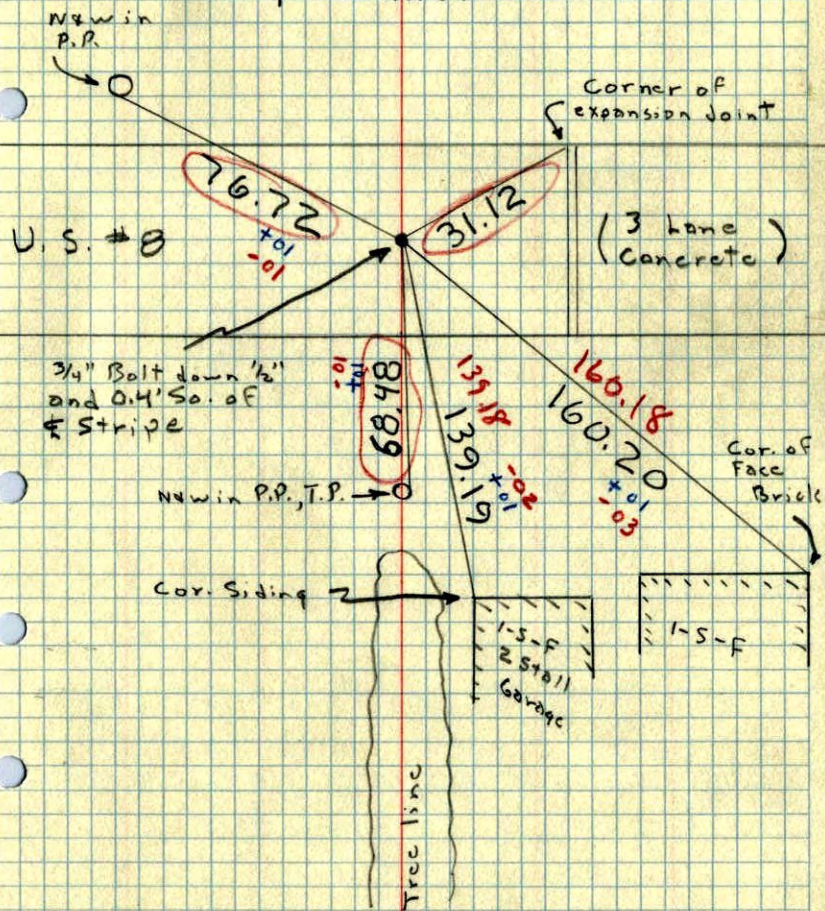 N&W in
P.P.
Corner of
expansion Joint
76.72
+01
-01
31.12
U.S. #8
(3 Lane
Concrete)
3/4" Bolt down 1/2"
and 0.4' So. of
℄ Stripe
-01
+01
68.48
139.18
139.19
-02
+01
160.18
160.20
+01
-03
Cor. of
Face
Brick
N&W in P.P., T.P.
Cor. Siding
1-S-F
2 Stall
Garage
1-S-F
Tree line